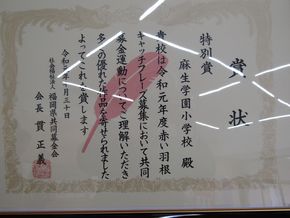 賞状
特別賞
麻生学園小学校 殿
貴校は令和元年度赤い羽根
キャッチフレーズ募集において共同
募金運動についてご理解いただき
多くの優れた作品を寄せられました
よってこれを賞します
令和元年 月三十日
社会福祉法人 福岡県共同募金会
会長 貫 正義